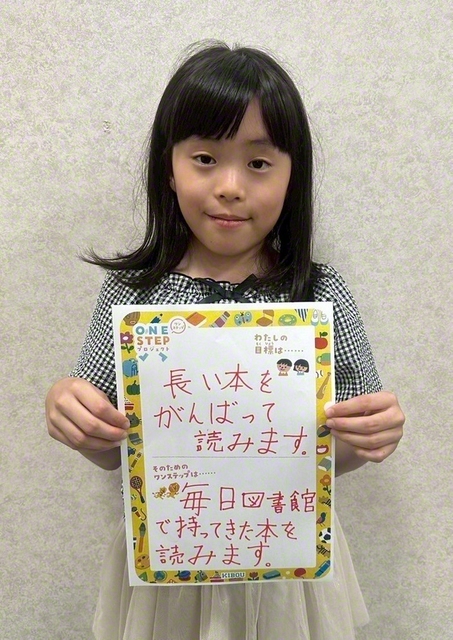 ONE
STEP
プロジェクト
わたしの
目標は……
長い本を
がんばって
読みます。
そのための
ワンステップは……
毎日図書館
で持ってきた本を
読みます。
KIBOU